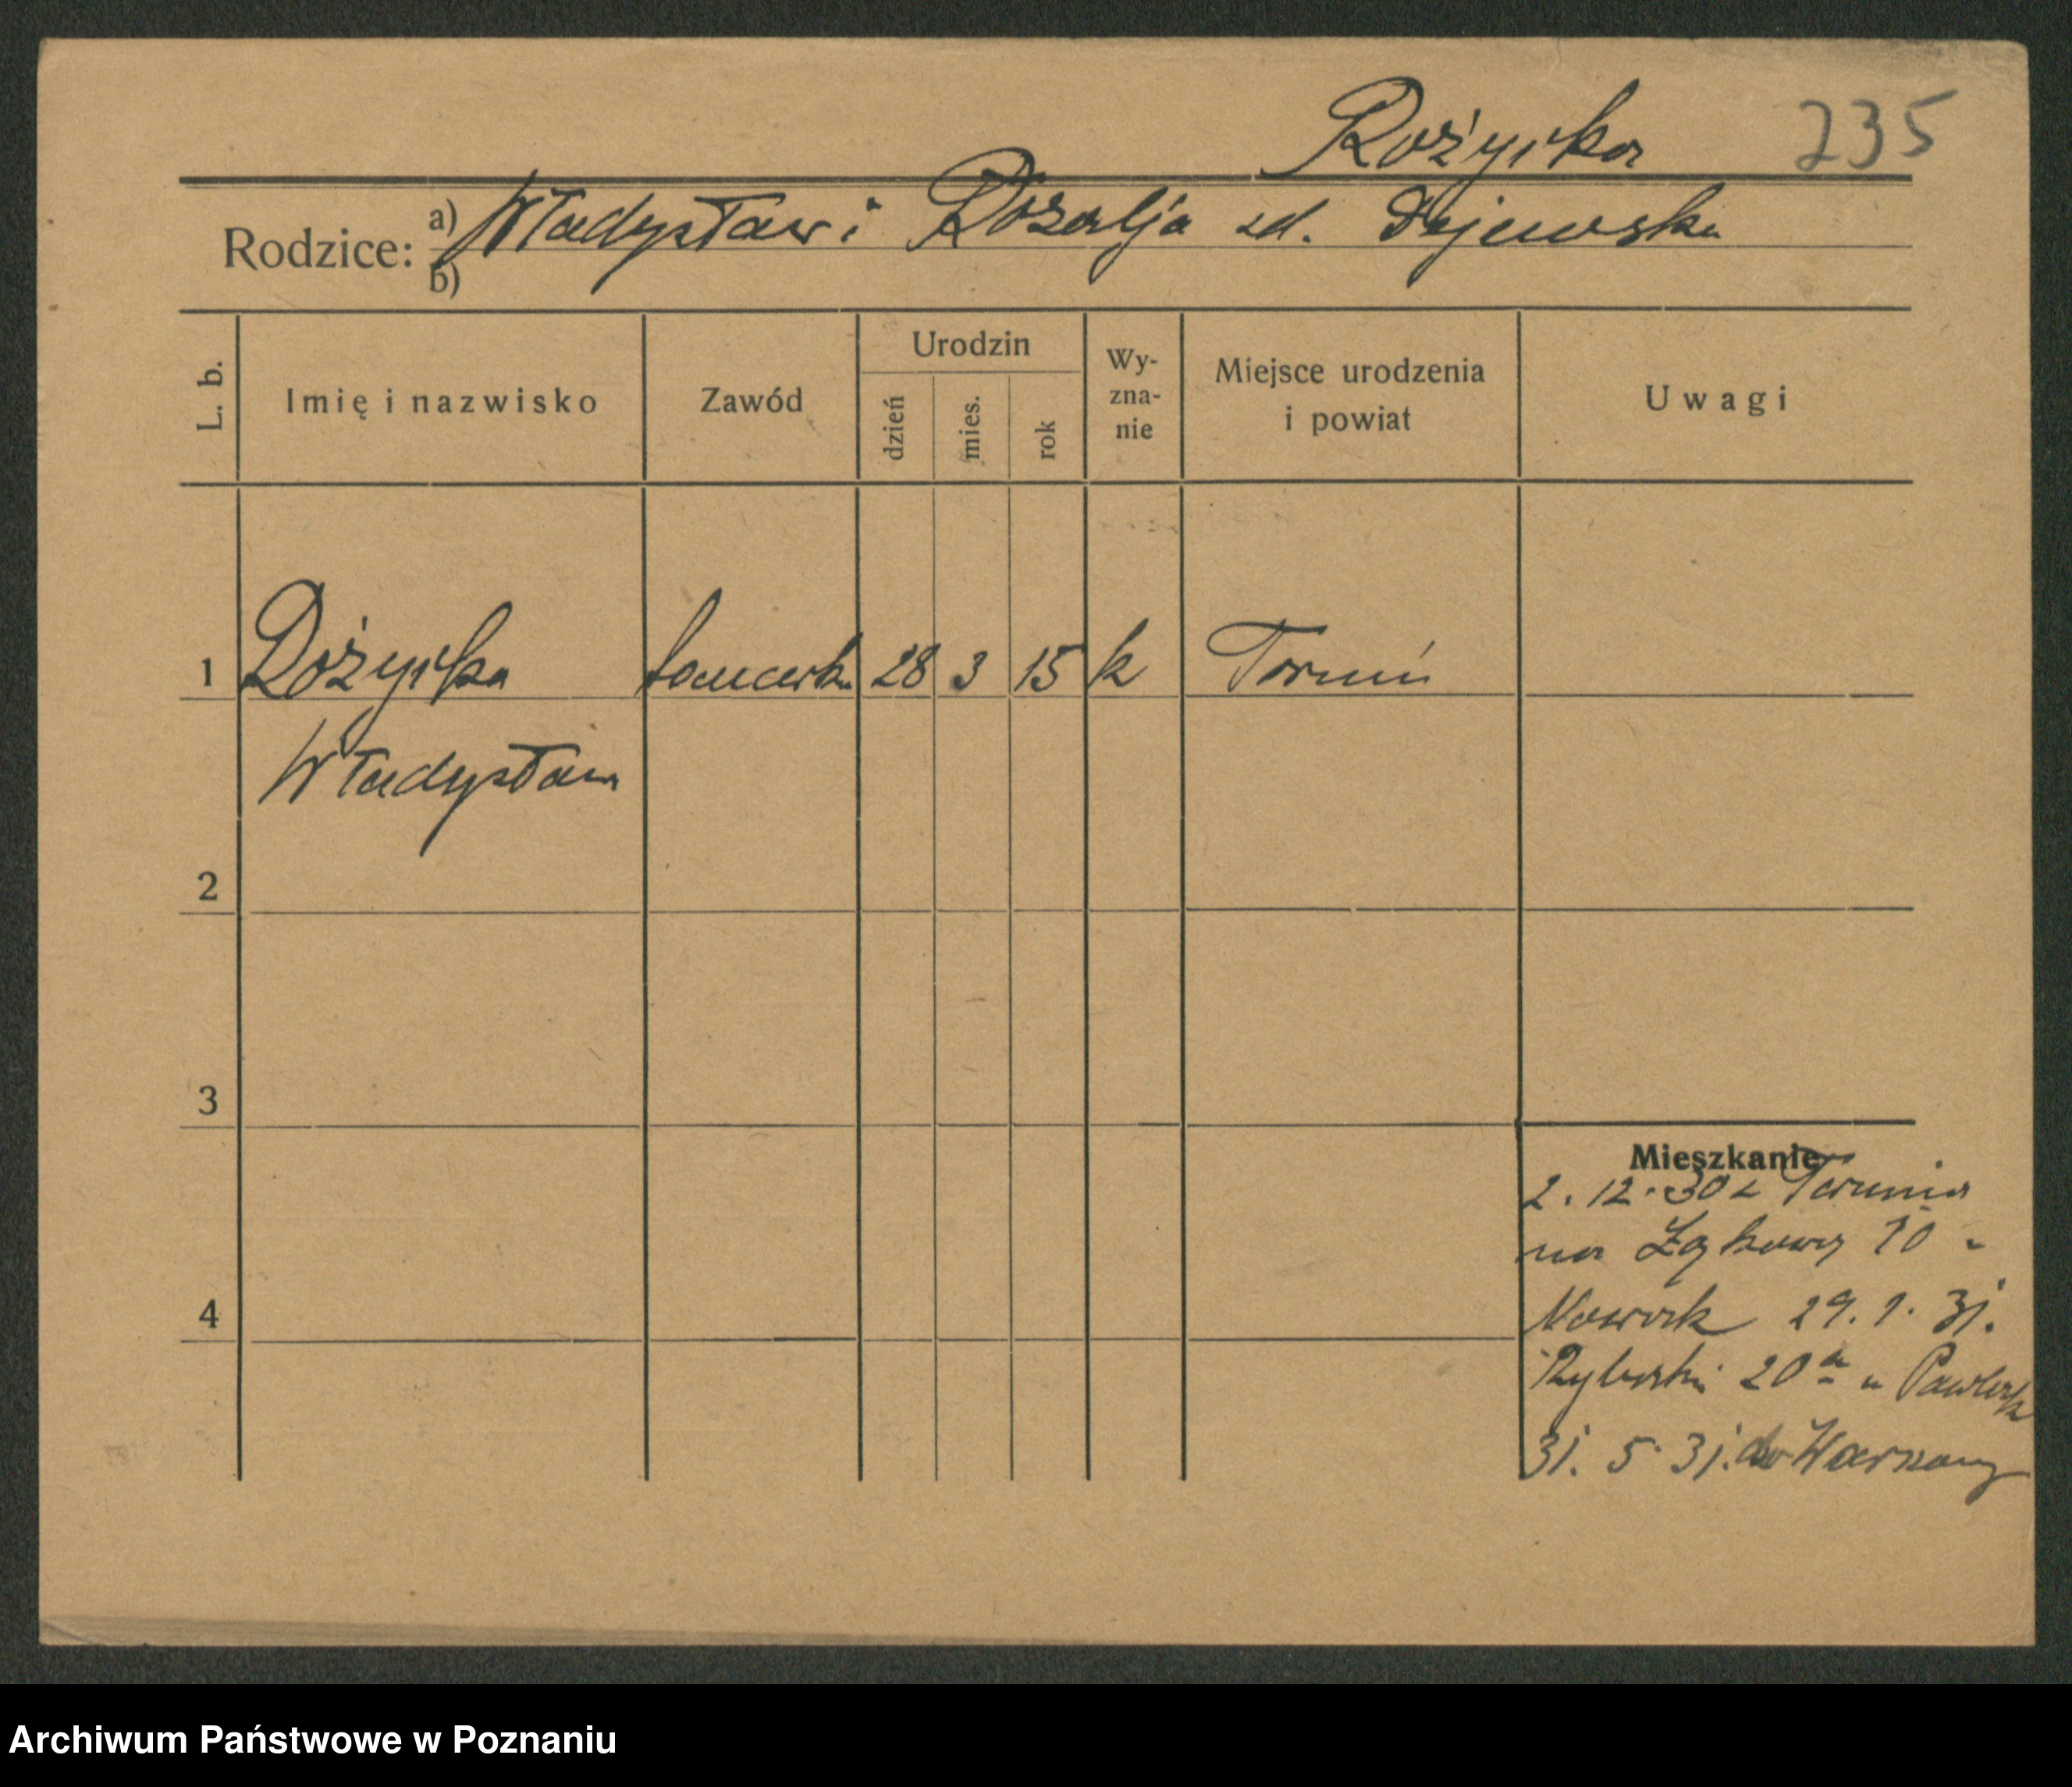 Rożycka 235
Rodzice: a) Władysław i Rozalja zd. Dejewska
b)
L. b. Imię i nazwisko Zawód Urodzin dzień mies. rok Wy-zna-nie Miejsce urodzenia i powiat Uwagi
1 Rożycka tancerka 28 3 15 k Toruń
Władysława
2
3
4
Mieszkanie
2. 12. 30 z Torunia
na Łąkowy 10 u
Nowack 29. 1. 31.
Rybacki 20a u Pawlack
31. 5. 31. do Warszawy
Archiwum Państwowe w Poznaniu